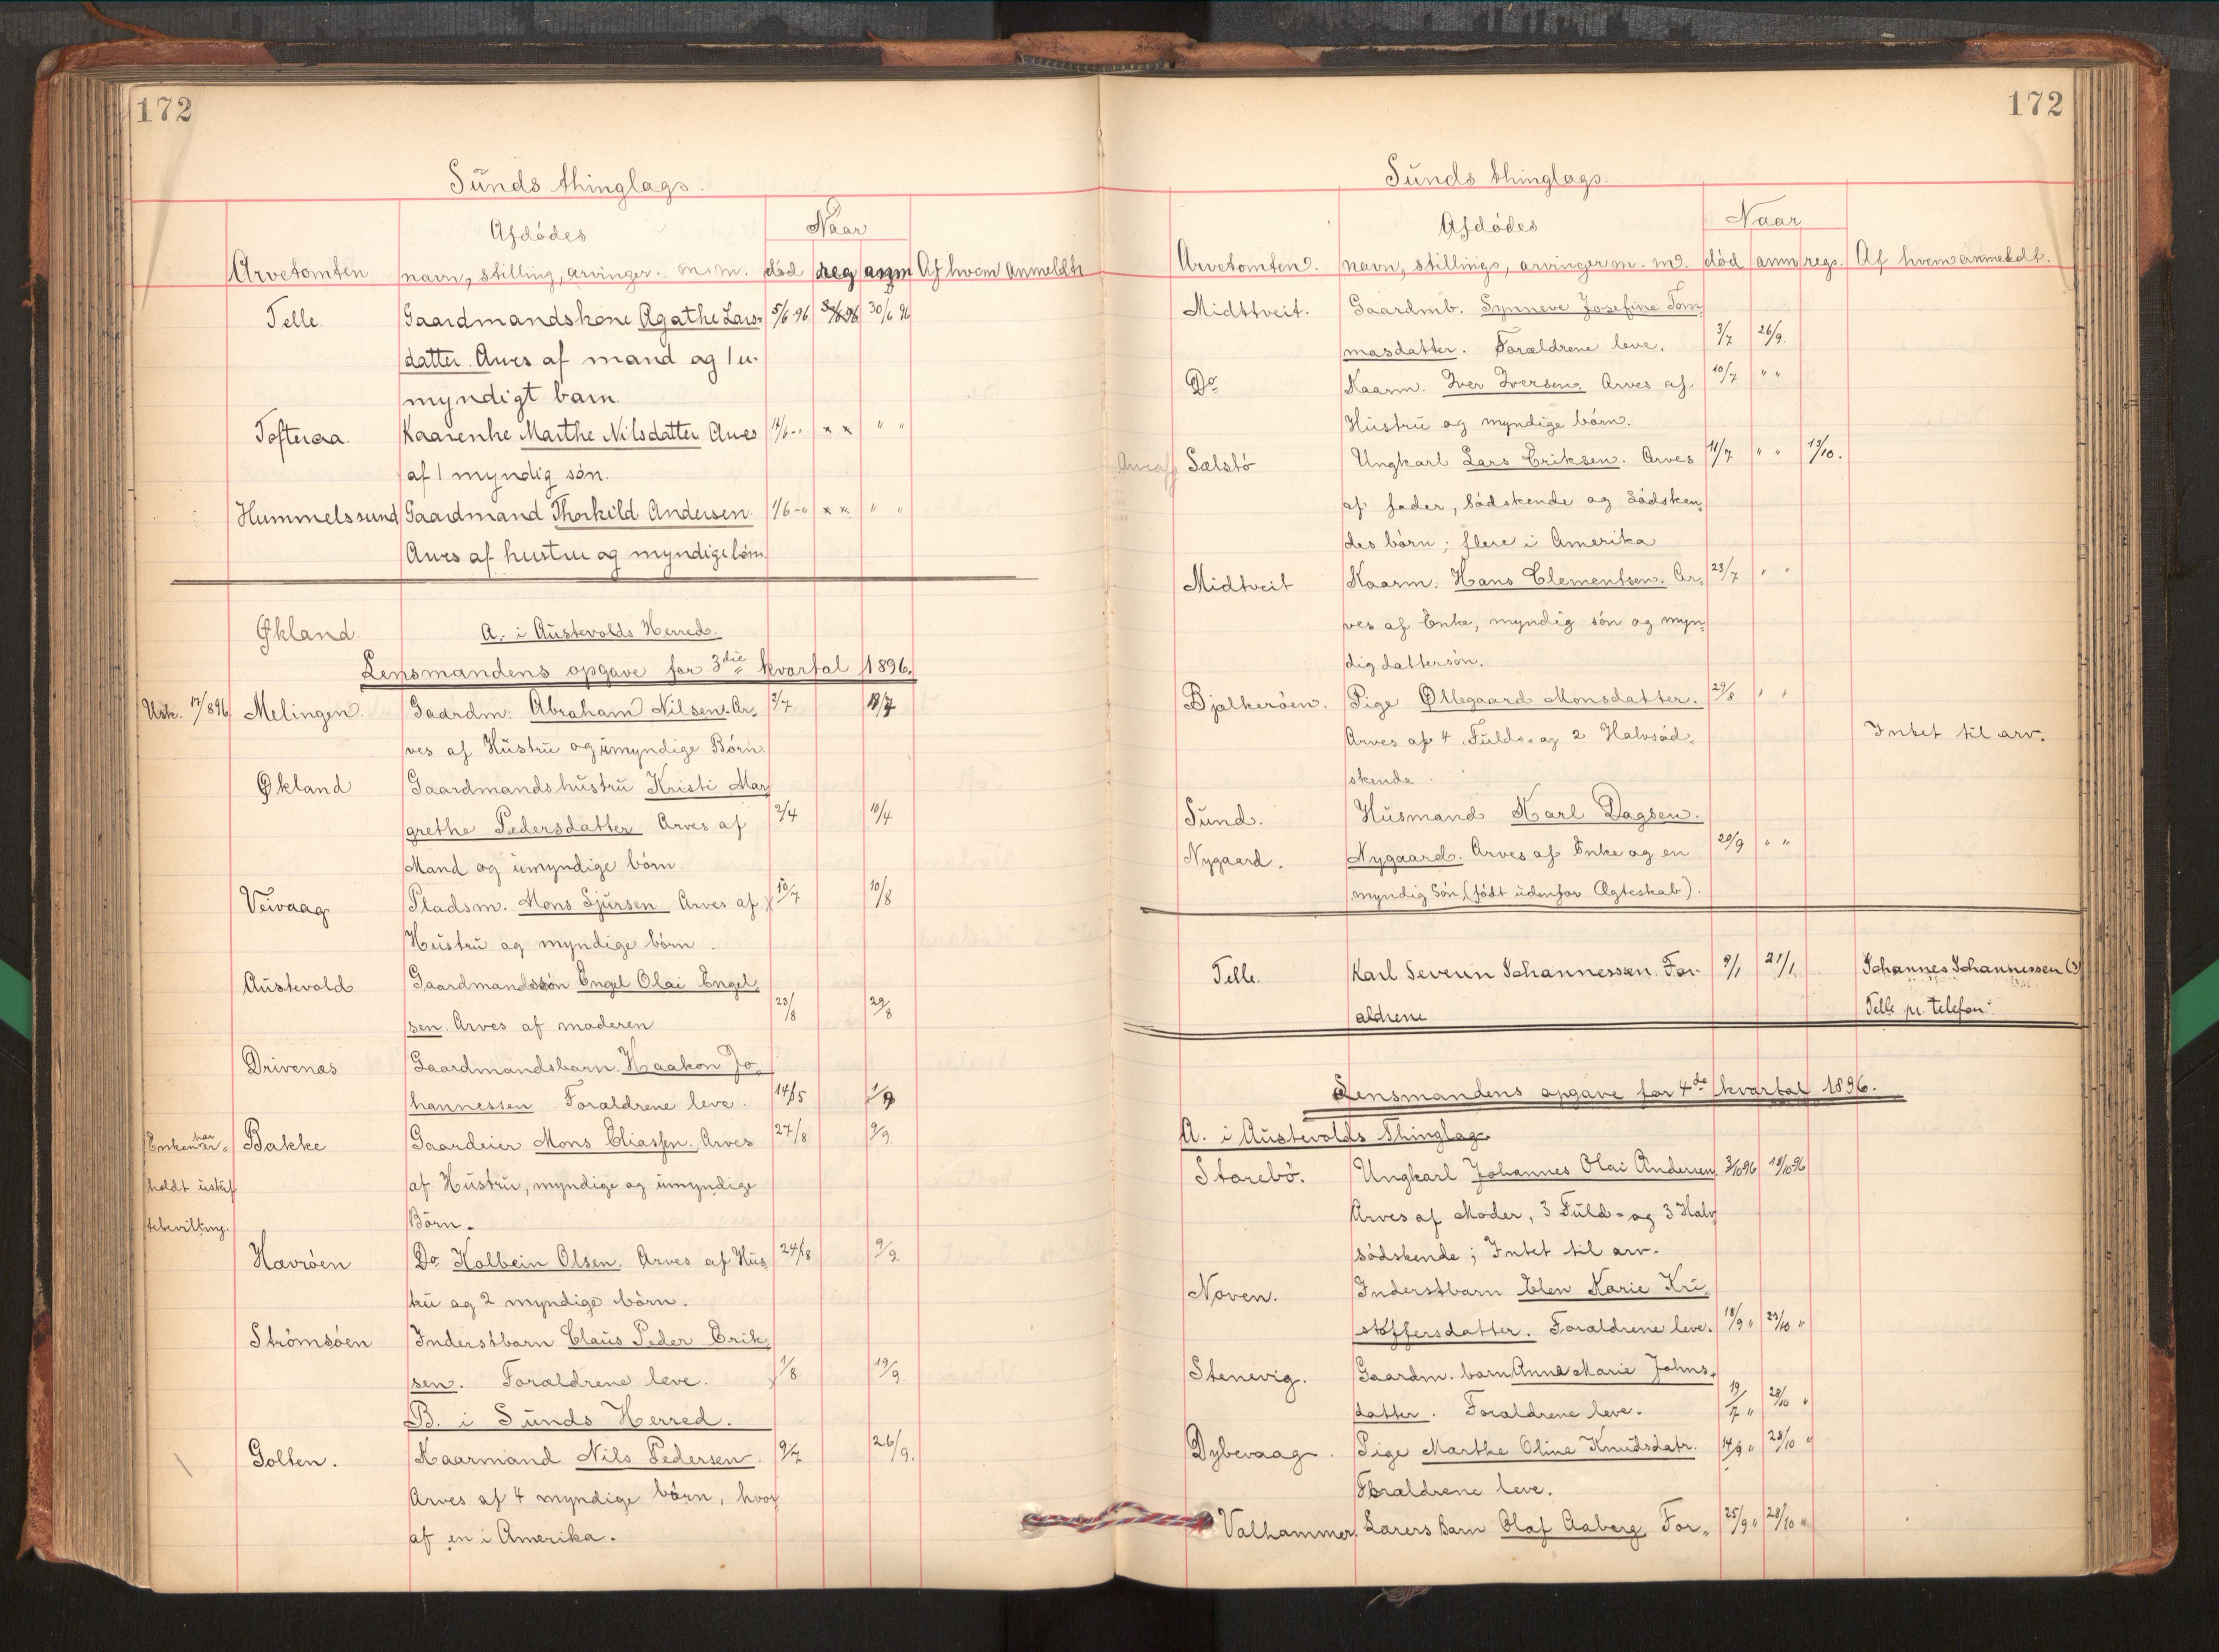 172
Sunds thinglags.
Afdødes
Naar
Arvetomten navn, stilling, arvinger. m.m. død reg anm Af hvem anmeldt
Telle. Gaardmandskone Agathe Lars- 5/6 96 30/6 96
datter. Arves af mand og 1 u-
myndigt barn.
Tofteraa. Kaarenke Marthe Nilsdatter Arves 14/6 -" " " " "
af 1 myndig søn.
Hummelssund Gaardmand Thorkild Andersen. 1/6 -" " " " "
Arves af hustru og myndige børn.
Økland. A. i Austevolds Herred.
Lensmandens opgave for 3die kvartal 1896.
Utsk. 17/8 96 Melingen. Gaardm. Abraham Nilsen. Ar- 2/7 18/7
ves af Hustru og umyndige Børn.
Økland Gaardmandshustru Kristi Mar-
grethe Pedersdatter Arves af 2/4 10/4
Mand og umyndige børn
Veivaag Pladsm. Mons Sjursen Arves af 10/7 10/8
Hustru og myndige børn.
Austevold Gaardmandssøn Engel Olai Engel-
sen. Arves af moderen 23/8 29/8
Drivenæs Gaardmandsbarn. Haakon Jo-
hannessen Forældrene leve. 14/5 1/9
Enken har er- Bakke Gaardeier Mons Eliassen. Arves 27/8 9/9.
holdt uskif- af Hustru, myndige og umyndige
tebevilling. Børn.
Havrøen Do Kolbein Olsen. Arves af Hus- 24/8 9/9.
tru og 2 myndige børn.
Strømsøen Inderstbarn Claus Peder Erik-
sen. Forældrene leve. 1/8 19/9
B. i Sunds Herred.
Golten. Kaarmand Nils Pedersen. 9/7 26/9.
Arves af 4 myndige børn, hvor-
af en i Amerika.
172
Sunds thinglags.
Afdødes
Naar
Arvetomten. navn, stillings, arvinger m. m. død anm regs. Af hvem anmeldt.
Midttveit. Gaardmb. Synneve Josefine Tom-
masdatter. Forældrene leve. 3/7 26/9.
Do Kaarm. Iver Iversen. Arves af 10/7 " "
Hustru og myndige børn.
Sælstø Ungkarl Lars Eriksen. Arves 11/7 " " 19/10.
af fader, Sødskende og Sødsken-
des børn; flere i Amerika
Midtveit Kaarm. Hans Clementsen. Ar- 23/7 " "
ves af Enke, myndig søn og myn-
dig dattersøn.
Bjelkerøen. Pige Øllegaard Monsdatter. 29/8 " "
Arves af 4 Fuld- og 2 Halvsød- Intet til arv.
skende.
Sund. Husmand Karl Dagsen.
Nygaard. Nygaard. Arves af Enke og en 20/9 " "
myndig Søn, (født udenfor Ægteskab).
Telle. Karl Severin Johannessen. For- 9/1 21/1 Johannes Johannessen
ældrene Telle pr. telefon.
Lensmandens opgave for 4de kvartal 1896.
A. i Austevolds Thinglag.
Storebø. Ungkarl Johannes Olai Andersen 3/10 96 18/10 96
Arves af Moder, 3 Fuld- og 3 Halv-
sødskende; Intet til arv.
Noven. Inderstbarn Elen Karie Kri-
stoffersdatter. Forældrene leve. 18/9 " 23/10 "
Stenevig. Gaardm. barn Anna Marie Johns-
datter. Forældrene leve. 19/7 " 28/10 "
Dybevaag. Pige Marthe Oline Knudsdatr. 14/9 " 28/10 "
Forældrene leve.
Valhammer. Lærers Barn Olaf Aaberg For- 25/9 " 28/10 "